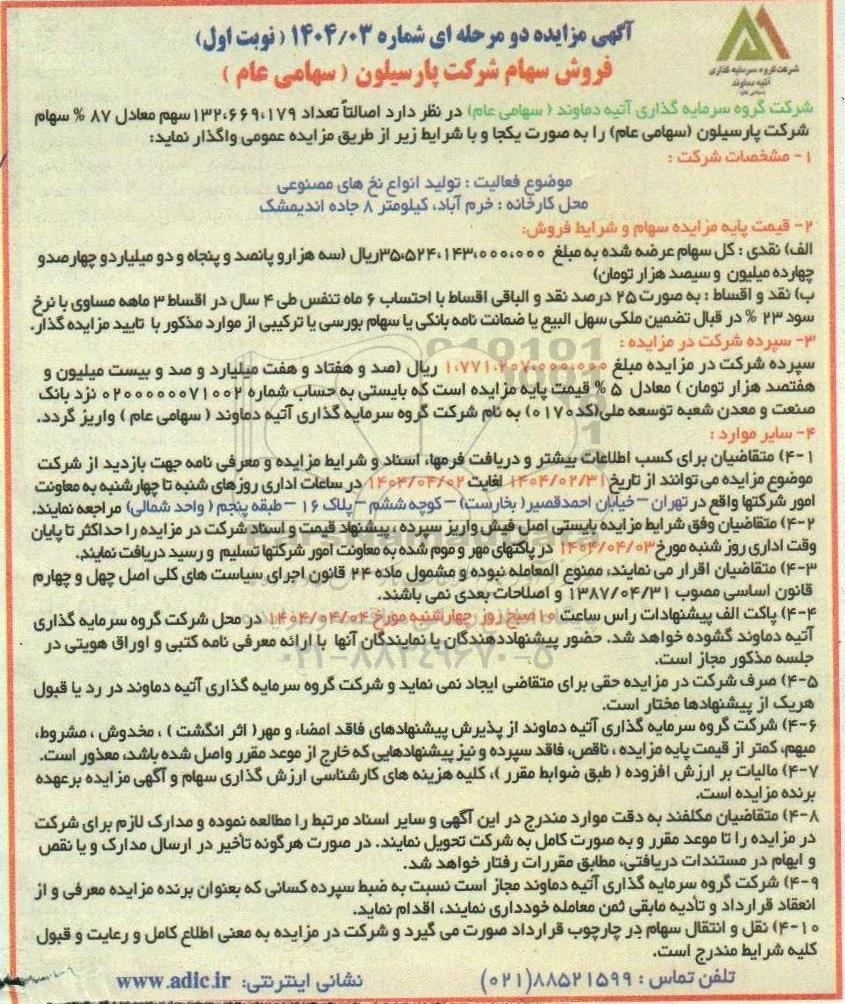 آگهی مزایده دو مرحله ای شماره ۱۴۰۴/۰۳ ( نوبت اول)
فروش سهام شرکت پارسیلون ( سهامی عام )
شرکت گروه سرمایه گذاری
آتیه دماوند
شرکت گروه سرمایه گذاری آتیه دماوند ( سهامی عام) در نظر دارد اصالتاً تعداد ۱۳۲،۶۶۹،۱۷۹سهم معادل ۸۷ % سهام
شرکت پارسیلون (سهامی عام) را به صورت یکجا و با شرایط زیر از طریق مزایده عمومی واگذار نماید:
۱- مشخصات شرکت :
موضوع فعالیت : تولید انواع نخ های مصنوعی
محل کارخانه : خرم آباد، کیلومتر ۸ جاده اندیمشک
۲- قیمت پایه مزایده سهام و شرایط فروش:
الف) نقدی : کل سهام عرضه شده به مبلغ ۳۵،۵۲۴،۱۴۳،۰۰۰،۰۰۰ریال (سه هزارو پانصد و پنجاه و دو میلیاردو چهارصدو
چهارده میلیون و سیصد هزار تومان)
ب) نقد و اقساط : به صورت ۲۵ درصد نقد و الباقی اقساط با احتساب ۶ ماه تنفس طی ۴ سال در اقساط ۳ ماهه مساوی با نرخ
سود ۲۳ % در قبال تضمین ملکی سهل البیع یا ضمانت نامه بانکی یا سهام بورسی یا ترکیبی از موارد مذکور با تایید مزایده گذار.
۳- سپرده شرکت در مزایده :
سپرده شرکت در مزایده مبلغ ۱،۷۷۱،۲۰۷،۰۰۰،۰۰۰ ریال (صد و هفتاد و هفت میلیارد و صد و بیست میلیون و
هفتصد هزار تومان ) معادل ۵ % قیمت پایه مزایده است که بایستی به حساب شماره ۰۲۰۰۰۰۰۰۷۱۰۰۲ نزد بانک
صنعت و معدن شعبه توسعه ملی(کد۰۱۷۰) به نام شرکت گروه سرمایه گذاری آتیه دماوند ( سهامی عام ) واریز گردد.
۴- سایر موارد :
۴-۱) متقاضیان برای کسب اطلاعات بیشتر و دریافت فرمها، اسناد و شرایط مزایده و معرفی نامه جهت بازدید از شرکت
موضوع مزایده می توانند از تاریخ ۱۴۰۴/۰۲/۳۱ لغایت ۱۴۰۴/۰۴/۰۲ در ساعات اداری روزهای شنبه تا چهارشنبه به معاونت
امور شرکتها واقع در تهران – خیابان احمدقصیر( بخارست) – کوچه ششم – پلاک ۱۶ – طبقه پنجم ( واحد شمالی) مراجعه نمایند.
۴-۲) متقاضیان وفق شرایط مزایده بایستی اصل فیش واریز سپرده ، پیشنهاد قیمت و اسناد شرکت در مزایده را حداکثر تا پایان
وقت اداری روز شنبه مورخ۱۴۰۴/۰۴/۰۳ در پاکتهای مهر و موم شده به معاونت امور شرکتها تسلیم و رسید دریافت نمایند.
۴-۳) متقاضیان اقرار می نمایند، ممنوع المعامله نبوده و مشمول ماده ۲۴ قانون اجرای سیاست های کلی اصل چهل و چهارم
قانون اساسی مصوب ۱۳۸۷/۰۴/۳۱ و اصلاحات بعدی نمی باشند.
۴-۴) پاکت الف پیشنهادات راس ساعت ۱۰صبح روز چهارشنبه مورخ ۱۴۰۴/۰۴/۰۴در محل شرکت گروه سرمایه گذاری
آتیه دماوند گشوده خواهد شد. حضور پیشنهاددهندگان یا نمایندگان آنها با ارائه معرفی نامه کتبی و اوراق هویتی در
جلسه مذکور مجاز است.
۴-۵) صرف شرکت در مزایده حقی برای متقاضی ایجاد نمی نماید و شرکت گروه سرمایه گذاری آتیه دماوند در رد یا قبول
هریک از پیشنهادها مختار است.
۴-۶) شرکت گروه سرمایه گذاری آتیه دماوند از پذیرش پیشنهادهای فاقد امضاء و مهر( اثر انگشت ) ، مخدوش ، مشروط،
مبهم، کمتر از قیمت پایه مزایده ، ناقص، فاقد سپرده و نیز پیشنهادهایی که خارج از موعد مقرر واصل شده باشد، معذور است.
۴-۷) مالیات بر ارزش افزوده ( طبق ضوابط مقرر )، کلیه هزینه های کارشناسی ارزش گذاری سهام و آگهی مزایده برعهده
برنده مزایده است.
۴-۸) متقاضیان مکلفند به دقت موارد مندرج در این آگهی و سایر اسناد مرتبط را مطالعه نموده و مدارک لازم برای شرکت
در مزایده را تا موعد مقرر و به صورت کامل به شرکت تحویل نمایند. در صورت هرگونه تأخیر در ارسال مدارک و یا نقص
و ابهام در مستندات دریافتی، مطابق مقررات رفتار خواهد شد.
۴-۹) شرکت گروه سرمایه گذاری آتیه دماوند مجاز است نسبت به ضبط سپرده کسانی که بعنوان برنده مزایده معرفی و از
انعقاد قرارداد و تأدیه مابقی ثمن معامله خودداری نمایند، اقدام نماید.
۴-۱۰) نقل و انتقال سهام در چارچوب قرارداد صورت می گیرد و شرکت در مزایده به معنی اطلاع کامل و رعایت و قبول
کلیه شرایط مندرج است.
تلفن تماس : ۸۸۵۲۱۵۹۹(۰۲۱) نشانی اینترنتی: www.adic.ir
۰۲۱-۸۸۳۴۹۶۷۰-۵